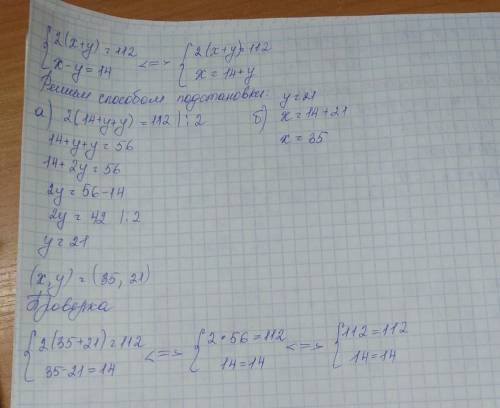 { 2(x+y) = 112 <=> { 2(x+y) = 112
x-y = 14 x = 14+y
Решаем способом подстановки:
а) 2(14+y+y) = 112 |:2
14+y+y = 56
14+2y = 56
2y = 56-14
2y = 42 |:2
y = 21
б) y = 21
x = 14+21
x = 35
(x, y) = (35, 21)
Проверка
{ 2(35+21) = 112 <=> { 2•56 = 112 <=> { 112 = 112
35-21 = 14 14 = 14 14 = 14